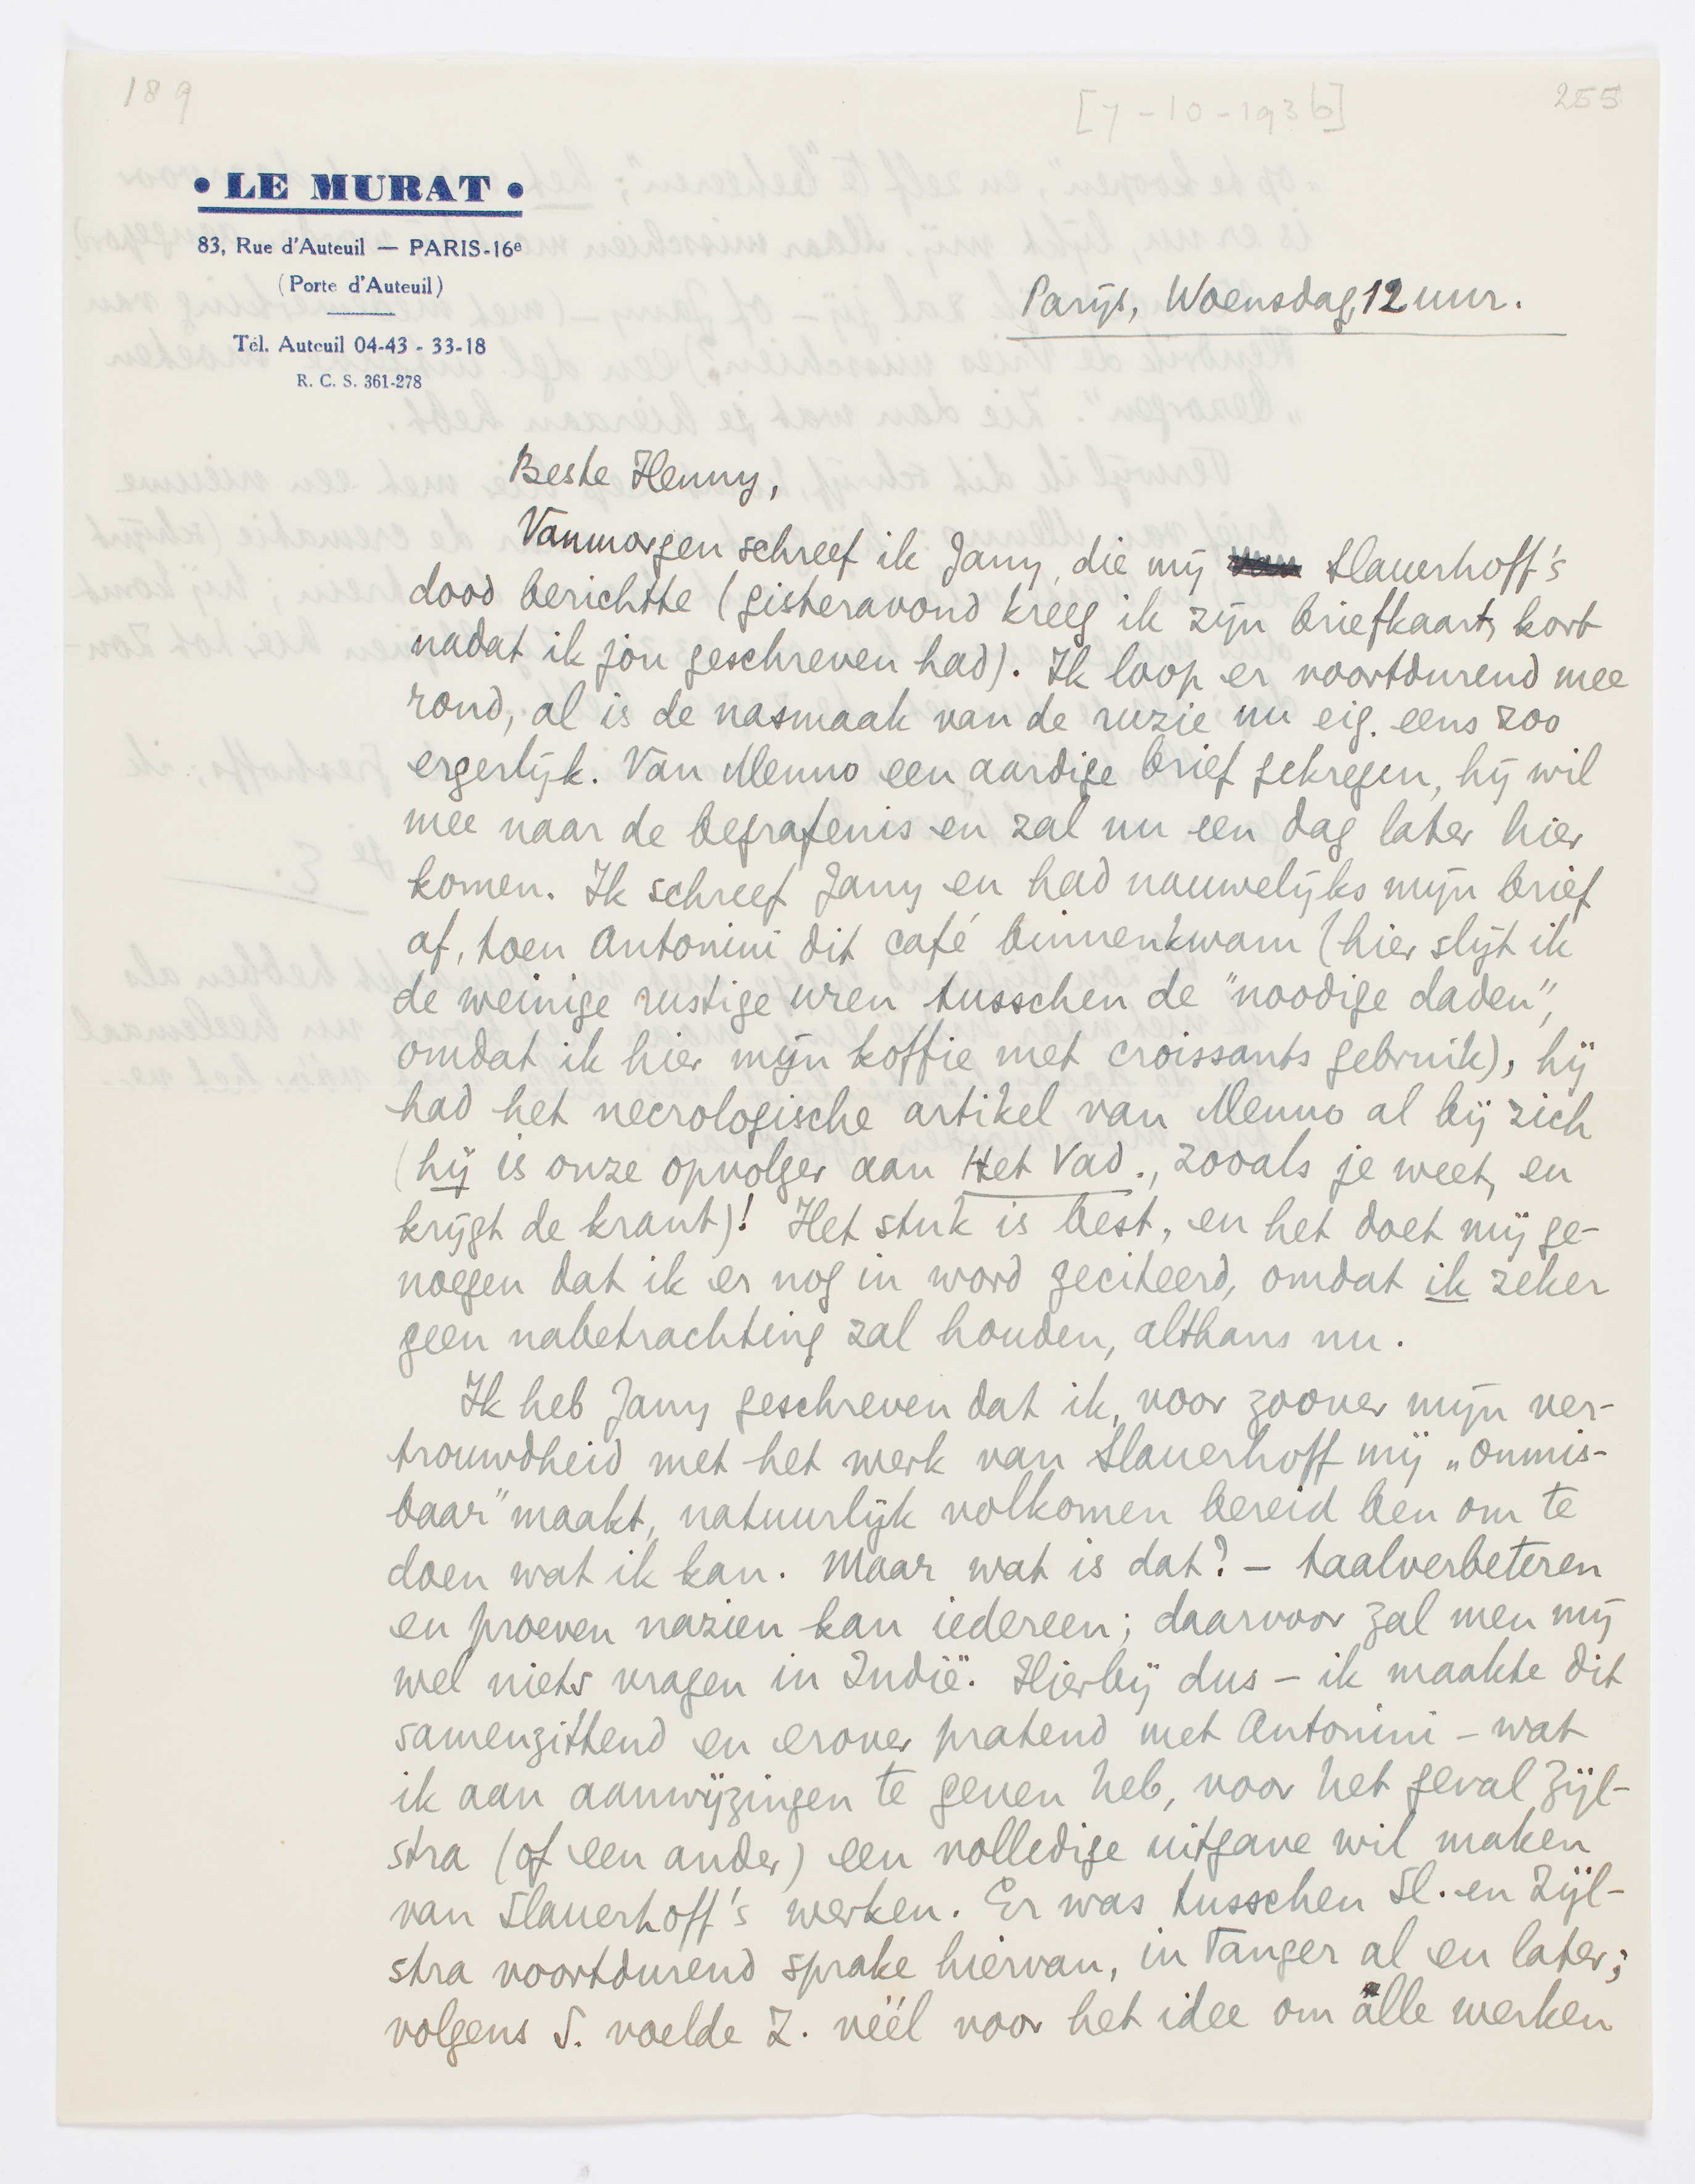 189
[7-10-1936]
255
• LE MURAT •
83, Rue d'Auteuil — PARIS-16e
(Porte d'Auteuil)
Tél. Auteuil 04-43 - 33-18
R. C. S. 361-278
Parijs, Woensdag, 12 uur.
Beste Henny,
Vanmorgen schreef ik Jany, die mij Slauerhoff's
dood berichtte (gisteravond kreeg ik zijn briefkaart, kort
nadat ik jou geschreven had). Ik loop er voortdurend mee
rond, al is de nasmaak van de ruzie nu eig. eens zoo
ergerlijk. Van Menno een aardige brief gekregen, hij wil
mee naar de begrafenis en zal nu een dag later hier
komen. Ik schreef Jany en had nauwelijks mijn brief
af, toen Antonini dit café binnenkwam (hier slijt ik
de weinige rustige uren tusschen de "noodige daden",
omdat ik hier mijn koffie met croissants gebruik), hij
had het necrologische artikel van Menno al bij zich
(hij is onze opvolger aan Het Vad., zooals je weet, en
krijgt de krant)! Het stuk is best, en het doet mij ge-
noegen dat ik er nog in word geciteerd, omdat ik zeker
geen nabetrachting zal houden, althans nu.
Ik heb Jany geschreven dat ik, voor zoover mijn ver-
trouwdheid met het werk van Slauerhoff mij „onmis-
baar" maakt, natuurlijk volkomen bereid ben om te
doen wat ik kan. Maar wat is dat? - taalverbeteren
en proeven nazien kan iedereen; daarvoor zal men mij
wel niets vragen in Indië. Hierbij dus - ik maakte dit
samenzittend en erover pratend met Antonini - wat
ik aan aanwijzingen te geven heb, voor het geval Zijl-
stra (of een ander) een volledige uitgave wil maken
van Slauerhoff's werken. Er was tusschen Sl. en Zijl-
stra voortdurend sprake hiervan, in Tanger al en later;
volgens S. voelde Z. véél voor het idee om alle werken